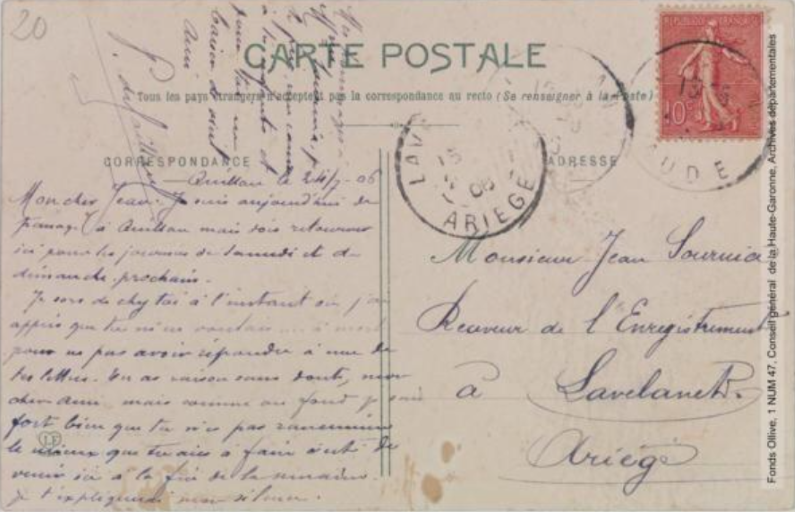 20
CARTE POSTALE
Tous les pays étrangers n'acceptent pas la correspondance au recto (Se renseigner à la Poste)
CORRESPONDANCE
ADRESSE
REPUBLIQUE FRANÇAISE
10
LAV
15
06
ARIEGE
AUDE
Quillan le 24/7 - 06
Mon cher Jean. Je suis aujourd'hui de
passage à Quillan mais dois retourner
ici pour les journées de samedi et de
dimanche prochain.
Je sors de chez toi à l'instant où j'ai
appris que tu m'en voulais à mort
pour ne pas avoir répondu à une de
tes lettres. Tu as raison sans doute, mon
cher ami, mais comme au fond je sais
fort bien que tu n'es pas rancunier
le mieux que tu aies à faire c'est de
venir ici à la fin de la semaine
je t'expliquerai mon silence.
Monsieur Jean Sournia
Receveur de l'Enregistrement
à Lavelanet
Ariège
LF
Fonds Ollive, 1 NUM 47, Conseil général de la Haute-Garonne, Archives départementales